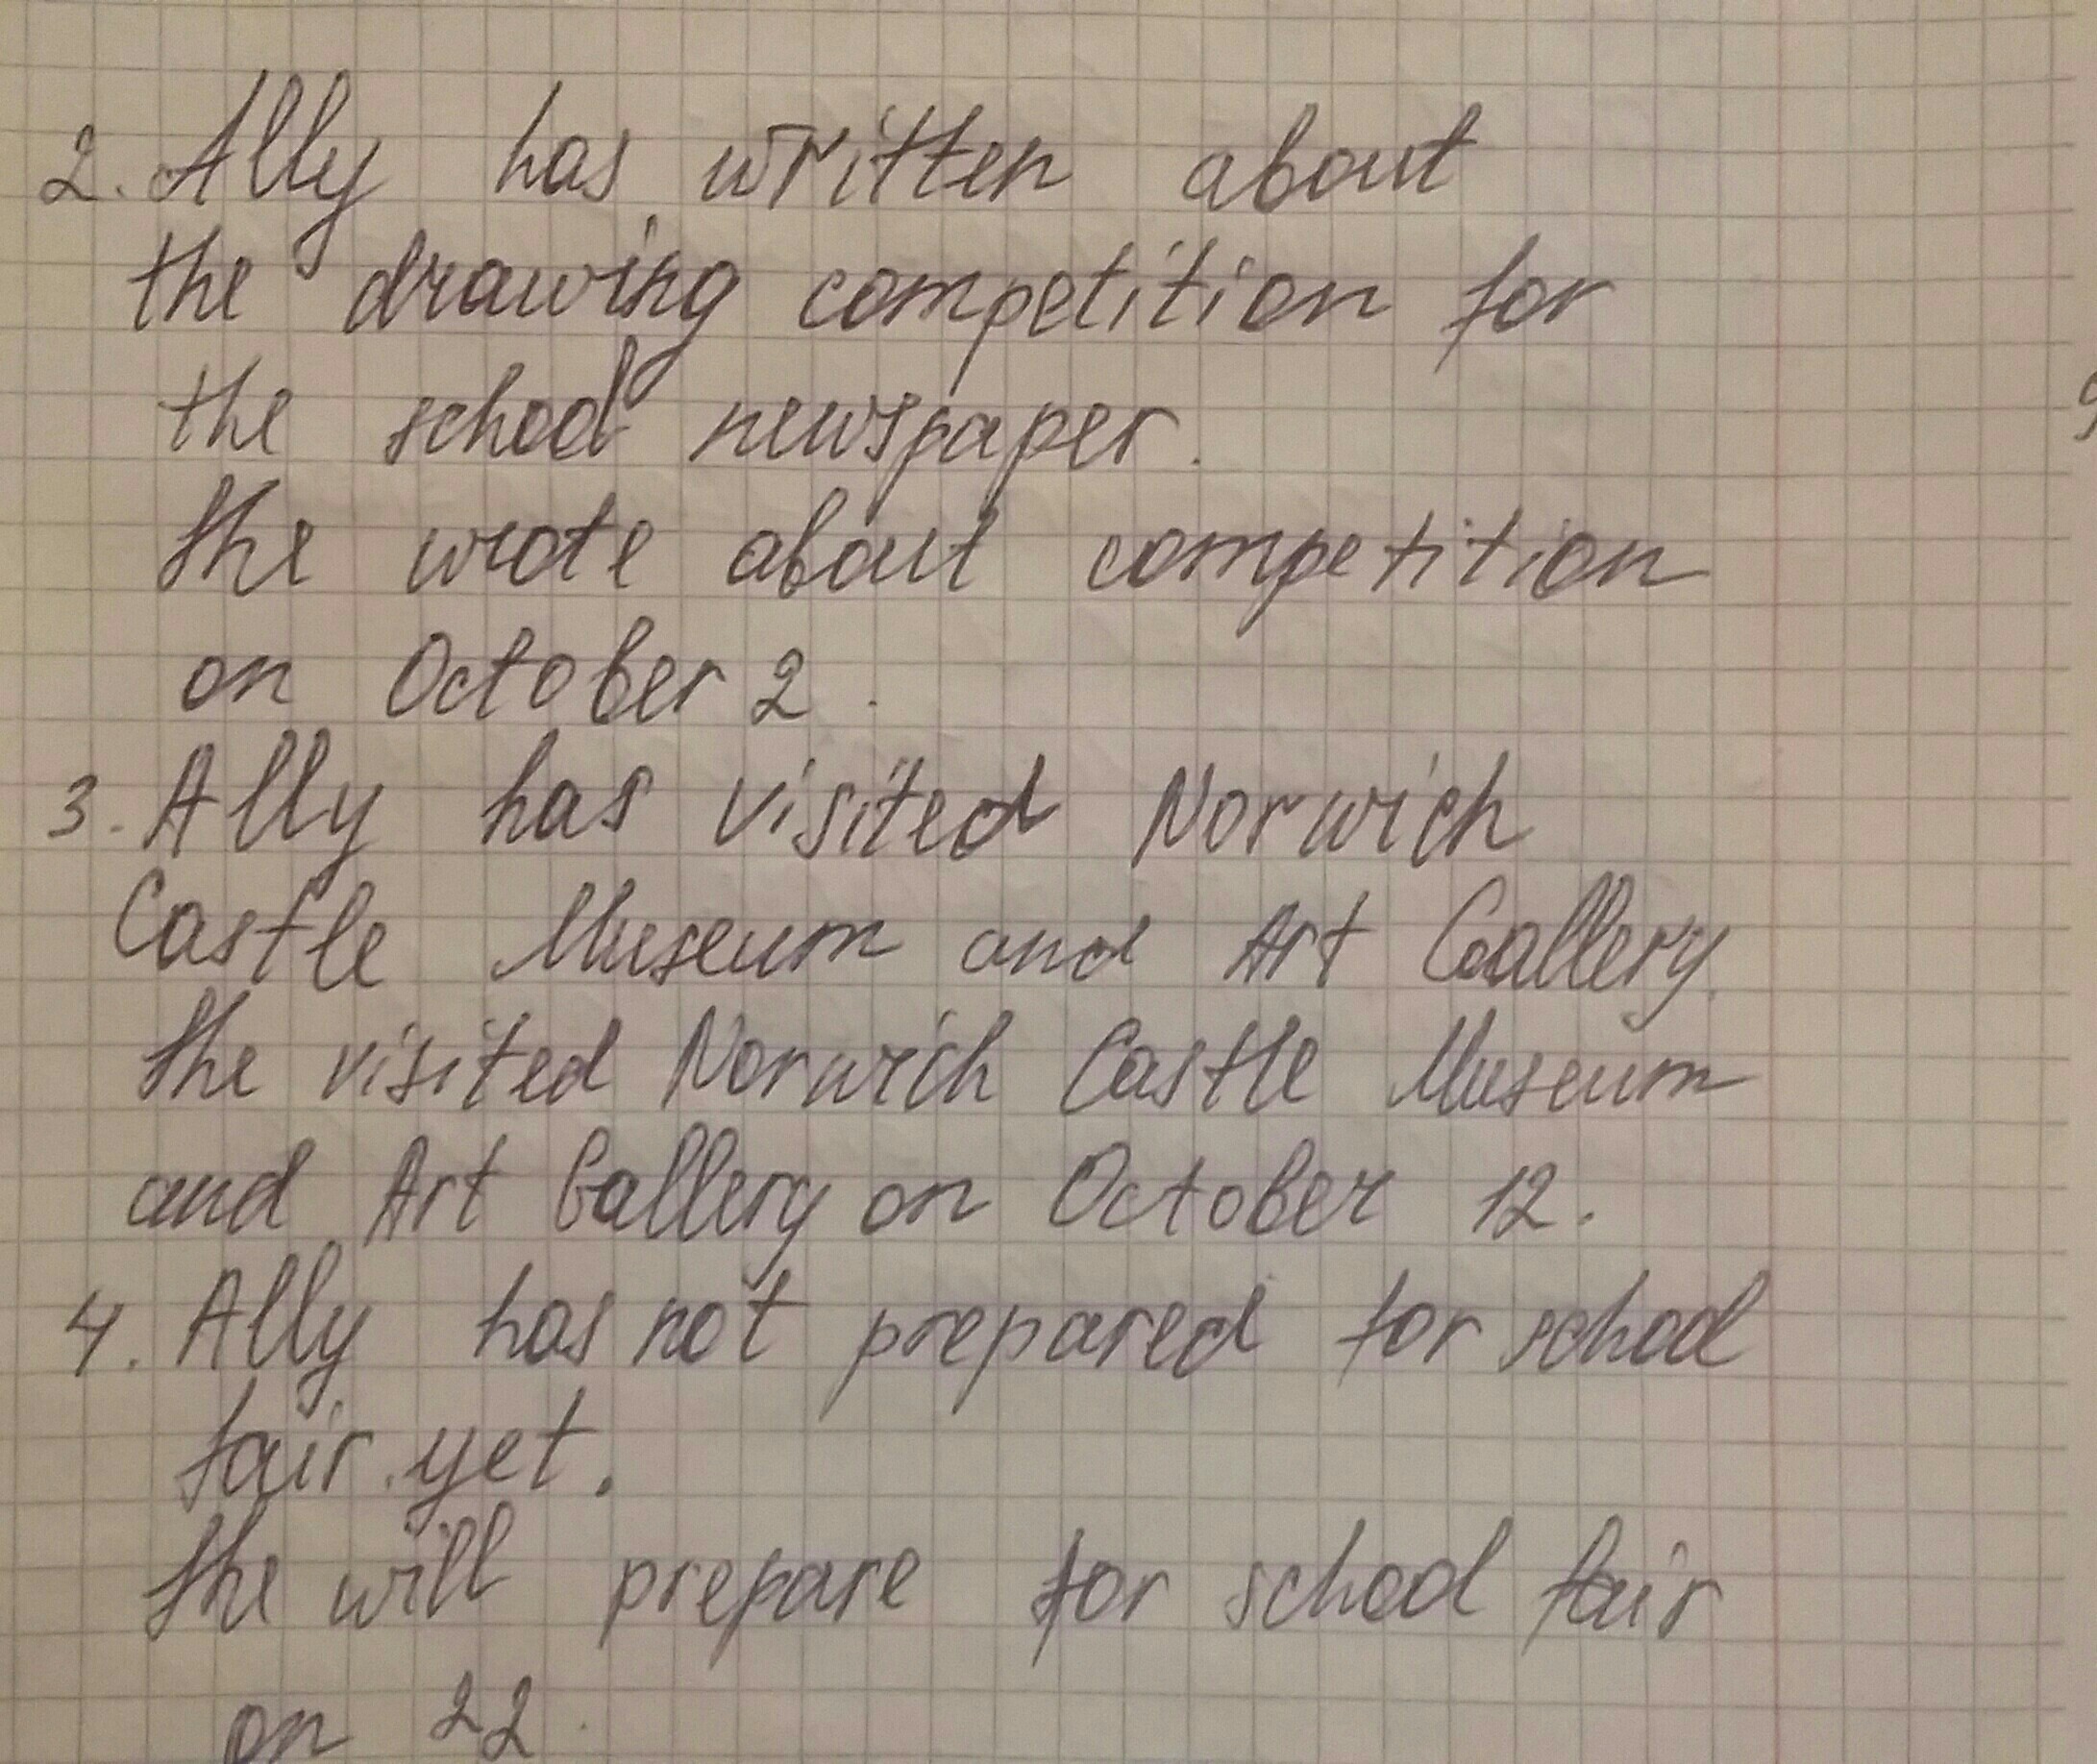 2. Ally has written about
the drawing competition for
the school newspaper.
She wrote about competition
on October 2.
3. Ally has visited Norwich
Castle Museum and Art Gallery.
She visited Norwich Castle Museum
and Art Gallery on October 12.
4. Ally has not prepared for school
fair yet.
She will prepare for school fair
on 22.